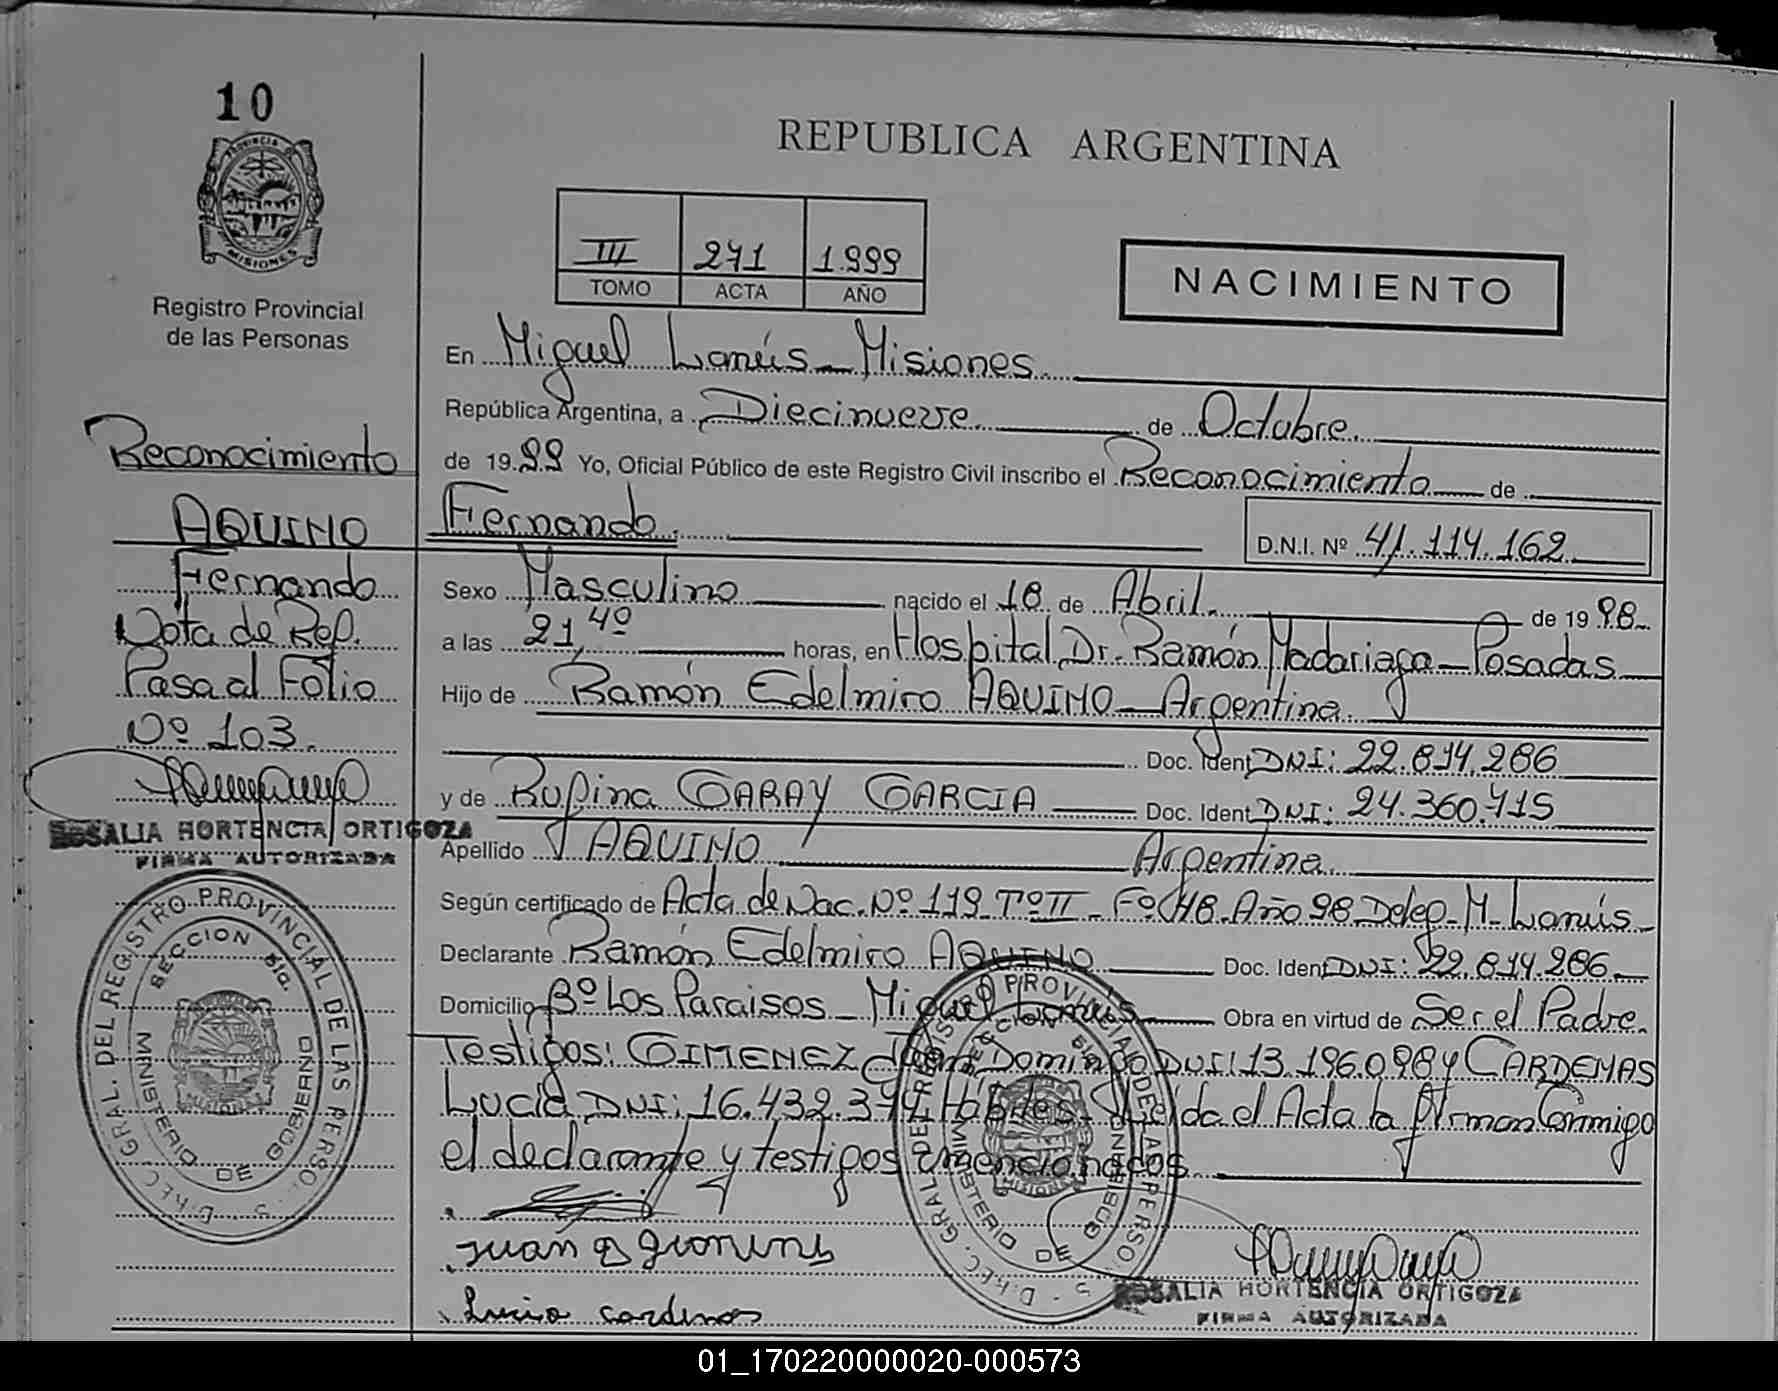 10
PROVINCIA D
MISIONES
Registro Provincial
de las Personas
REPUBLICA ARGENTINA
III 271 1.999
TOMO ACTA AÑO
NACIMIENTO
En Miguel Lanús - Misiones
República Argentina, a Diecinueve de Octubre
de 19 99 Yo, Oficial Público de este Registro Civil inscribo el Reconocimiento de
Fernando D.N.I. Nº 41.114.162
Sexo Masculino nacido el 18 de Abril de 19 98
a las 21,40 horas, en Hospital Dr. Ramón Madariaga - Posadas
Hijo de Ramón Edelmiro AQUINO - Argentina
Doc. Ident DNI: 22.814.286
y de Rufina GARAY GARCIA Doc. Ident DNI: 24.360.715
Apellido AQUINO Argentina
Según certificado de Acta de Nac. Nº 119 Tº II - Fº 48 - Año 98 Deleg. M. Lanús
Declarante Ramón Edelmiro AQUINO Doc. Ident DNI: 22.814.286
Domicilio Bº Los Paraisos - Miguel Lanús Obra en virtud de Ser el Padre
Testigos: GIMENEZ Juan Domingo DNI: 13.196.098 y CARDENAS
Lucia DNI: 16.432.374 Hábiles Leída el Acta la firman Conmigo
el declarante y testigos mencionados
Lucia cardenas
ROSALIA HORTENCIA ORTIGOZA
FIRMA AUTORIZADA
Reconocimiento
AQUINO
Fernando
Nota de Ref.
Pasa al Folio
Nº 103
ROSALIA HORTENCIA ORTIGOZA
FIRMA AUTORIZADA
DIREC. GRAL. DEL REGISTRO PROVINCIAL DE LAS PERSO
SECCION
MINISTERIO DE GOBIERNO
DIREC. GRAL. DEL REGISTRO PROVINCIAL DE LAS PERSO
SECCION
MINISTERIO DE GOBIERNO
MISIONES
01_170220000020-000573